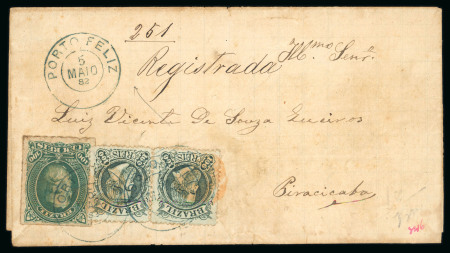 251
PORTO FELIZ
5
MAIO
83
Registrada
Illmo Senr.
Luiz Vicente De Souza Queiros
Piracicaba
BRAZIL
BRAZIL